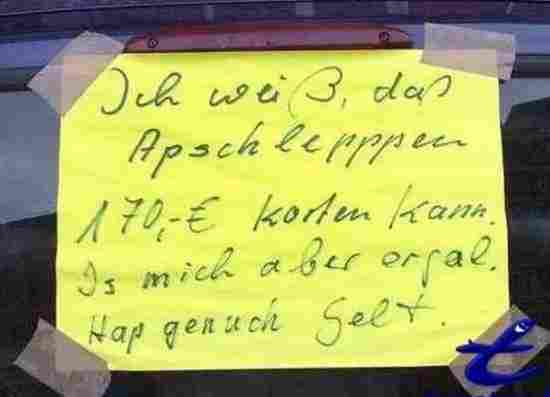 Ich weiß, das
Apschlepppen
170,-€ kosten kann.
Is mich aber ergal.
Hap genuch Gelt.